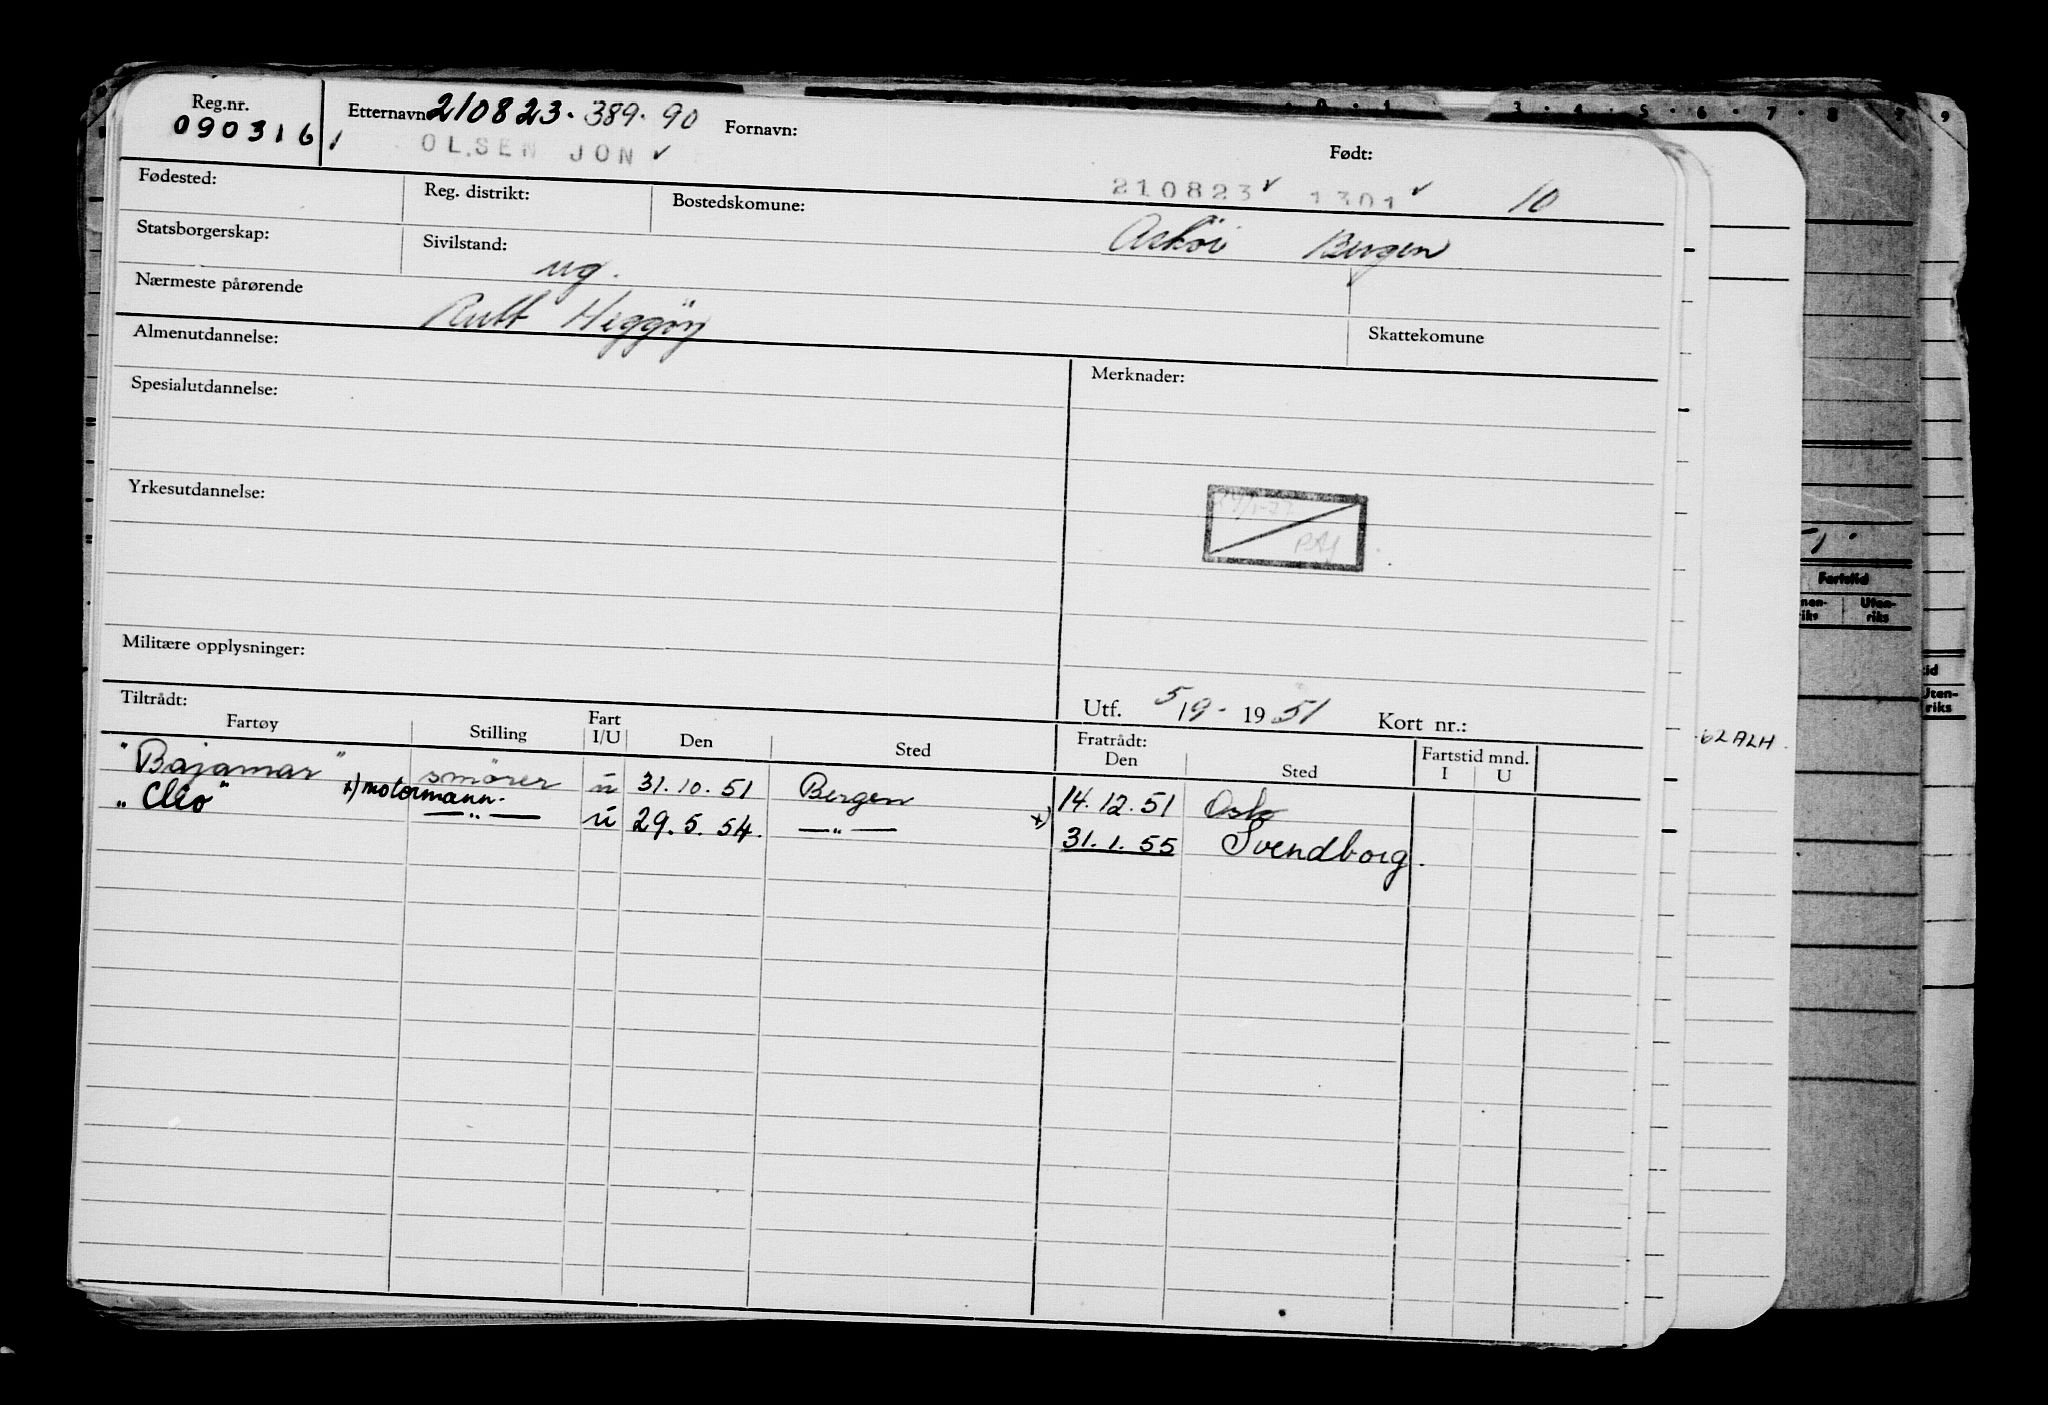 0 · 1 3 · 4 · 5 · 6 · 7 · 8 9 9
Reg.nr. Etternavn 210823. 389. 90 Fornavn: Født:
090316 1 OLSEN JON ✓ 210823 ✓ 1301 ✓ 10
Fødested: Reg. distrikt: Bostedskomune: Askøi Bergen
Statsborgerskap: Sivilstand: ug.
Nærmeste pårørende Heggöy Skattekomune
Almenutdannelse: Merknader:
Spesialutdannelse:
Yrkesutdannelse:
Militære opplysninger:
Tiltrådt: Utf. 5/9- 1951 Kort nr.:
Fartøy Stilling Fart I/U Den Sted Fratrådt: Den Sted Fartstid mnd. I U
"Bajamar" smörer u 31.10.51 Bergen 14.12.51 Oslo
"Cleo" x) motormann. —"— u 29.5.54. —"— x) 31.1.55 Svendborg.
Fartstid
Uten-
riks
62 ALH.